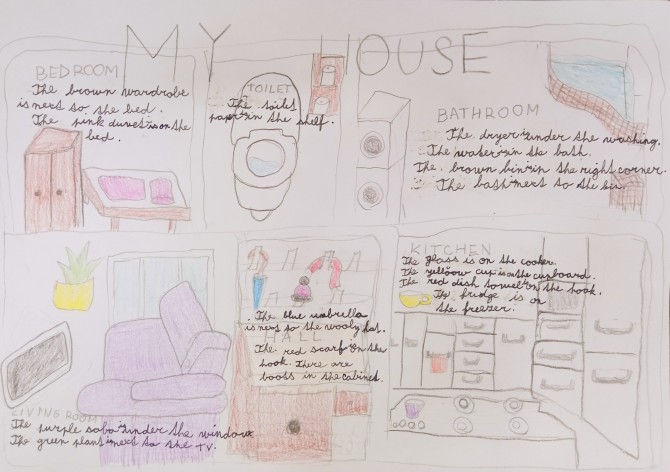 MY HOUSE
BEDROOM
The brown wardrobe
is next so the bed.
The pink duvet is on the
bed.
TOILET
The toilet
paper in the shelf.
BATHROOM
The dryer under the washing.
The water in the bath.
The brown bin in the right corner.
The bath next to the
LIVING ROOM
The purple sofa under the window
The green plant next to the TV.
HALL
The blue umbrella
is next so the wooly hat.
The red scarf on the
hook. There are
boots in the cabinet.
KITCHEN
The glass is on the cooker.
The yelloow cup is on the cupboard.
The red dish towel on the hook.
The fridge is on
the freezer.